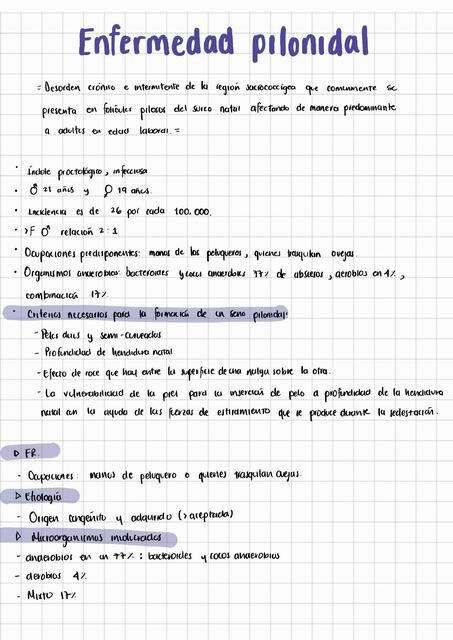 Enfermedad pilonidal
= Desorden crónico e intermitente de la región sacrococcígea que comunmente se
presenta en folículos pilosos del surco natal afectando de manera predominante
a adultos en edad laboral. =
· Índole proctológico, infecciosa
· ♂ 21 años y ♀ 19 años.
· Incidencia es de 26 por cada 100,000.
· >F ♂ relación 2:1
· Ocupaciones predisponentes: manos de los peluqueros, quienes trasquilan ovejas.
· Organismos anaerobios: bacteroides y cocos anaerobios 77% de abscesos, aerobios en 4%,
combinación 17%.
· Criterios necesarios para la formación de un seno pilonidal:
- Pelos duros y semi-curveados
- Profundidad de hendidura natal
- Efecto de roce que hay entre la superficie de una nalga sobre la otra.
- La vulnerabilidad de la piel para la inserción de pelo a profundidad de la hendidura
natal con la ayuda de las fuerzas de estiramiento que se produce durante la sedestación.
▷ FR.
- Ocupaciones: manos de peluquero o quienes trasquilan ovejas.
▷ Etiología
- Origen congénito y adquirido (> aceptada)
▷ Microorganismos involucrados
- anaerobios en un 77% : bacteroides y cocos anaerobios
- aerobios 4%
- Mixto 17%